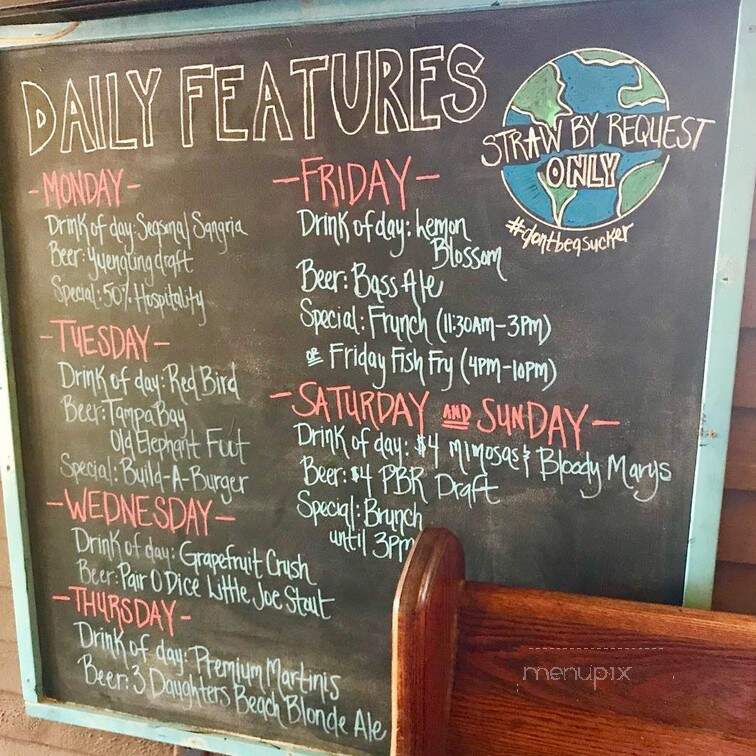 DAILY FEATURES
STRAW BY REQUEST
ONLY
#dontbeasucker
-MONDAY-
Drink of day: Seasonal Sangria
Beer: Yuengling draft
Special: 50% Hospitality
-TUESDAY-
Drink of day: Red Bird
Beer: Tampa Bay
Old Elephant Foot
Special: Build-A-Burger
-WEDNESDAY-
Drink of day: Grapefruit Crush
Beer: Pair O Dice Little Joe Stout
-THURSDAY-
Drink of day: Premium Martinis
Beer: 3 Daughters Beach Blonde Ale
-FRIDAY-
Drink of day: Lemon
Blossom
Beer: Bass Ale
Special: Frunch (11:30AM-3PM)
OR Friday Fish Fry (4PM-10PM)
-SATURDAY AND SUNDAY-
Drink of day: $4 mimosas & Bloody Marys
Beer: $4 PBR Draft
Special: Brunch
until 3pm
menupix